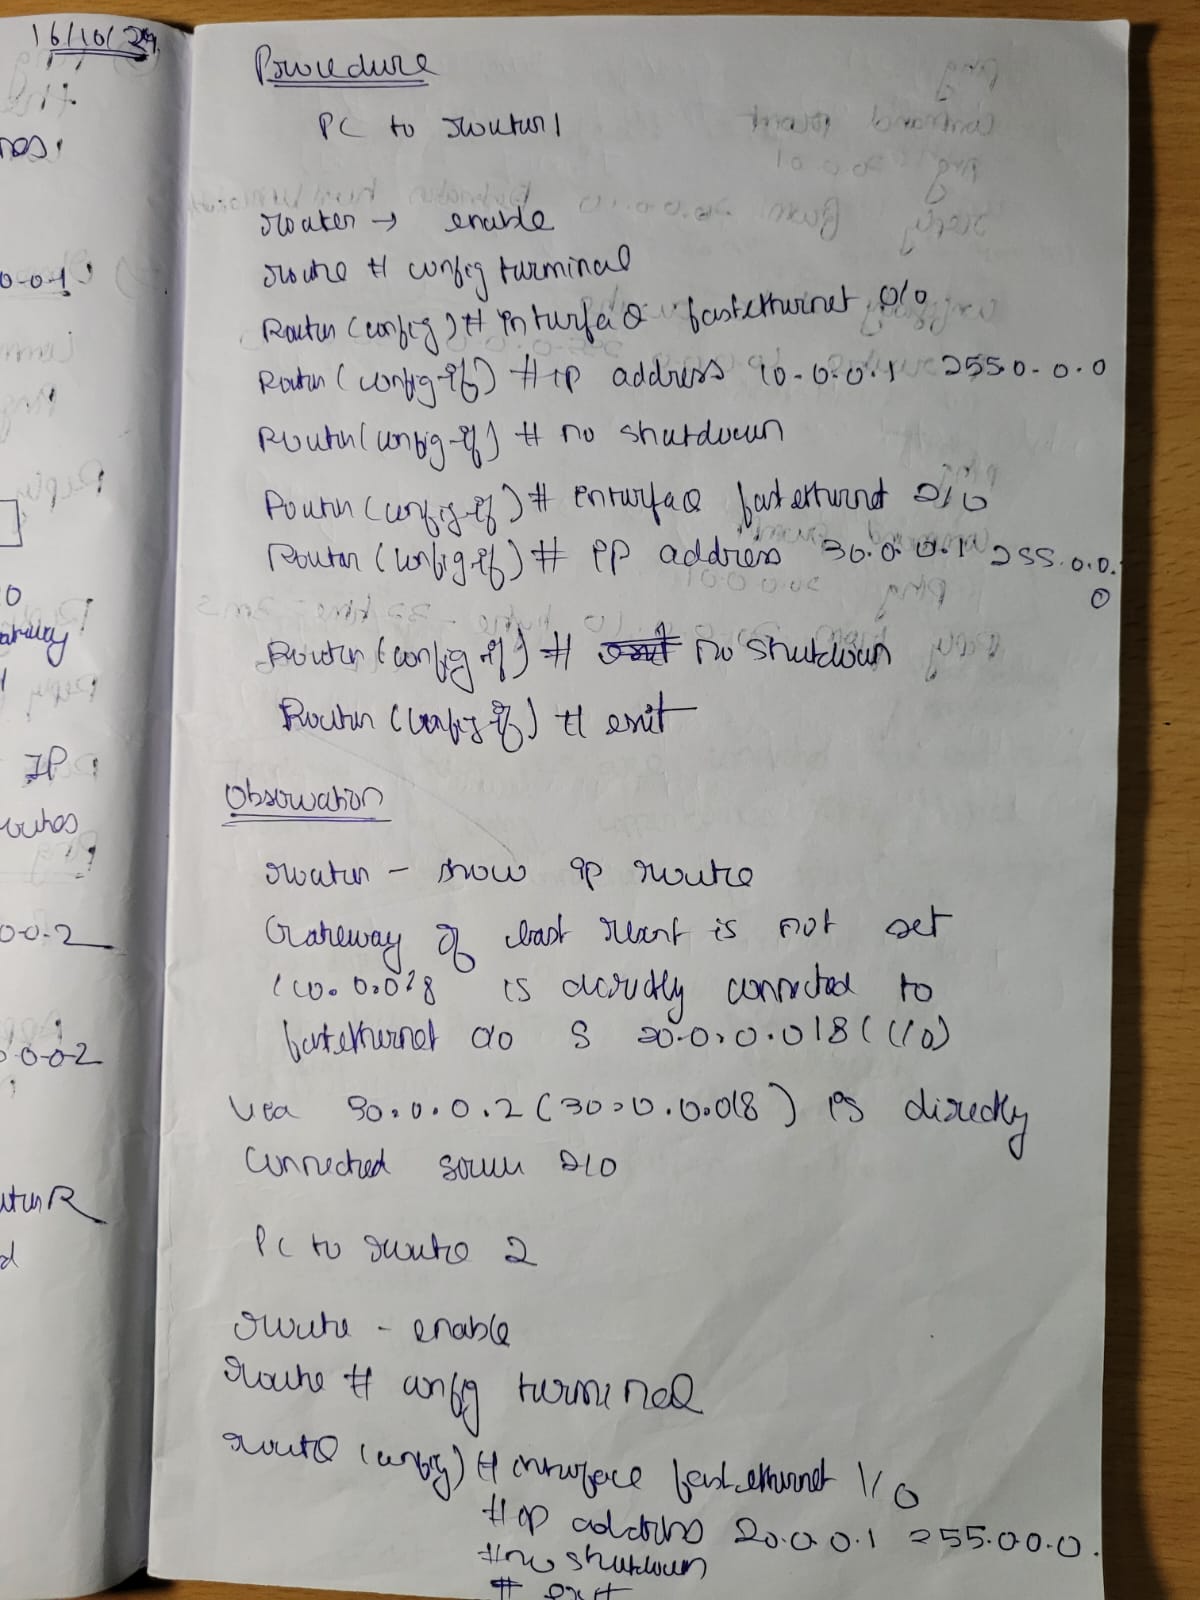 16/10/24
Procedure
PC to router 1
router → enable
route # config terminal
Router (config) # interface fastethernet 0/0
Router (config-if) # ip address 10.0.0.1 255.0.0.0
Router (config-if) # no shutdown
Router (config-if) # interface fastethernet 2/0
Router (config-if) # ip address 30.0.0.1 255.0.0.
0
Router (config-if) # no shutdown
Router (config-if) # exit
Observation
router - show ip route
Gateway of last resort is not set
is directly connected to
fastethernet 0/0 S 20.0.0.0/8 (1/0)
via 30.0.0.2 (30.0.0.0/8) is directly
connected 2/0
PC to route 2
route - enable
route # config terminal
route (config) # interface fastethernet 1/0
# ip address 20.0.0.1 255.0.0.0.
# no shutdown
# exit
0-0-1
IP
routes
0-0-2
0-0-0-2